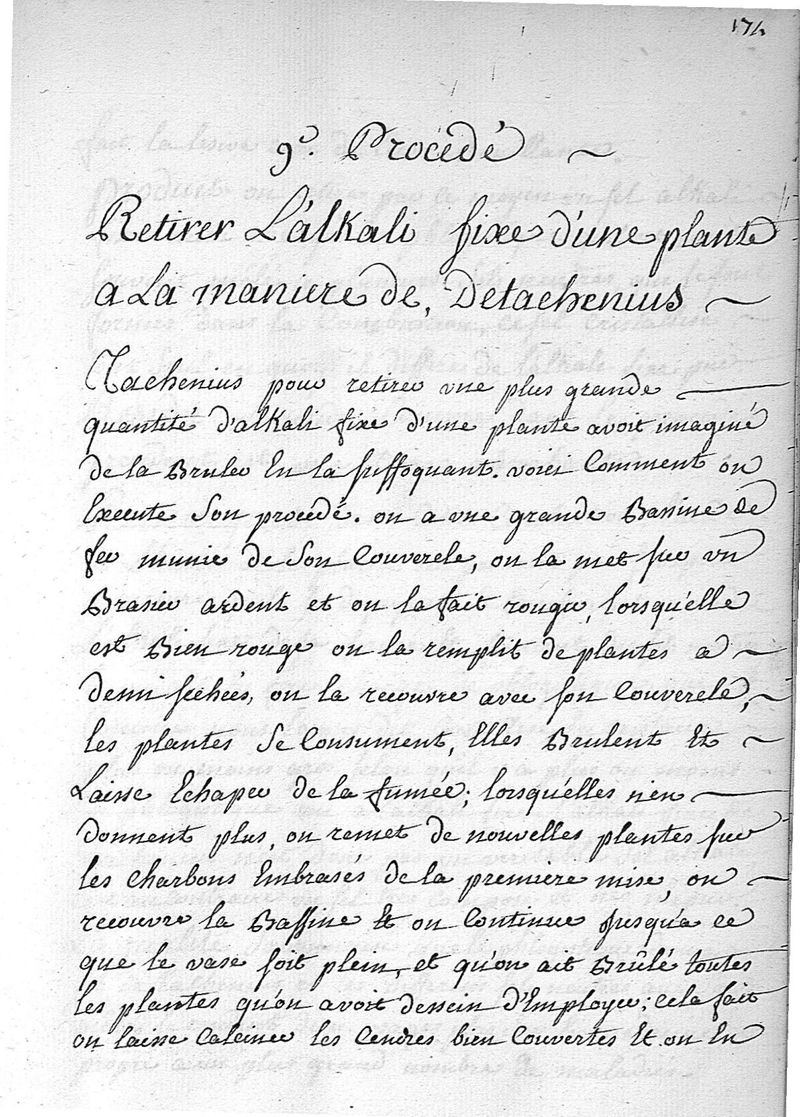 174
9e. Procédé
Retirer L'alkali fixe d'une plante
a La maniere de, Detachenius
Tachenius pour retirer une plus grande
quantité d'alkali fixe d'une plante avoit imaginé
de la Bruler En la suffoquant. voici Comment on
Execute Son procédé. on a une grande Bassine de
fer munie de Son Couvercle, on la met sur un
Brasier ardent et on la fait rougir, lorsqu'elle
est Bien rouge on la remplit de plantes a
demi séchées, on la recouvre avec son Couvercle,
les plantes Se Consument, Elles Brulent Et
Laisse Echaper de la fumée; lorsquelles n'en
donnent plus, on remet de nouvelles plantes sur
les Charbons Embrasés de la premiere mise, on
recouvre la Bassine Et on Continue Jusqu'a ce
que le vase soit plein, et qu'on ait Brûlé toutes
les plantes qu'on avoit dessein d'Employer; cela fait
on laisse Calciner les Cendres bien Couvertes Et on En